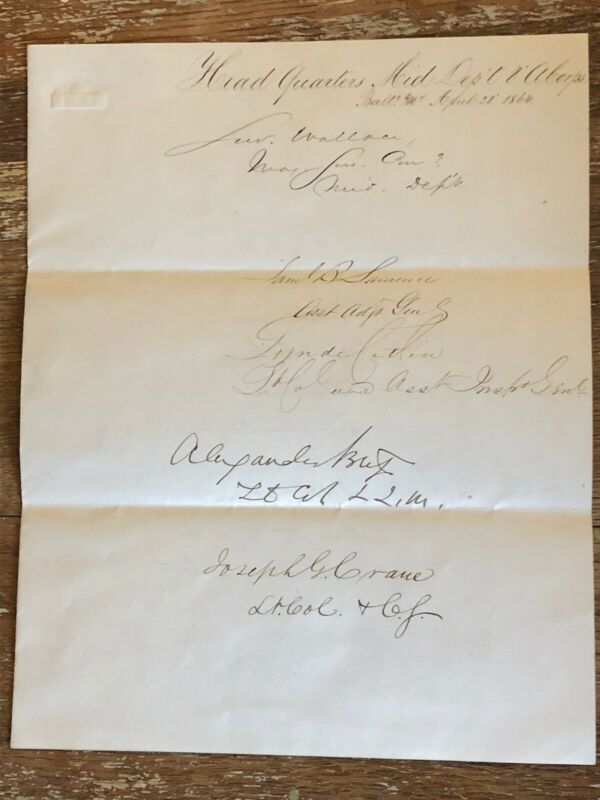 Head Quarters Mid Dep't & 8" A Corps
Balto. Md. April 28" 1864
Lew. Wallace,
Maj. Gen. Com'g
Mid. Dept.
Saml. B. Lawrence
Asst Adjt Genl
Lynde Catlin
Lt Col and Asst Inspr Genl
Alexander Bliss
Lt Col & Q.M.
Joseph G. Crane
Lt. Col. & C.S.